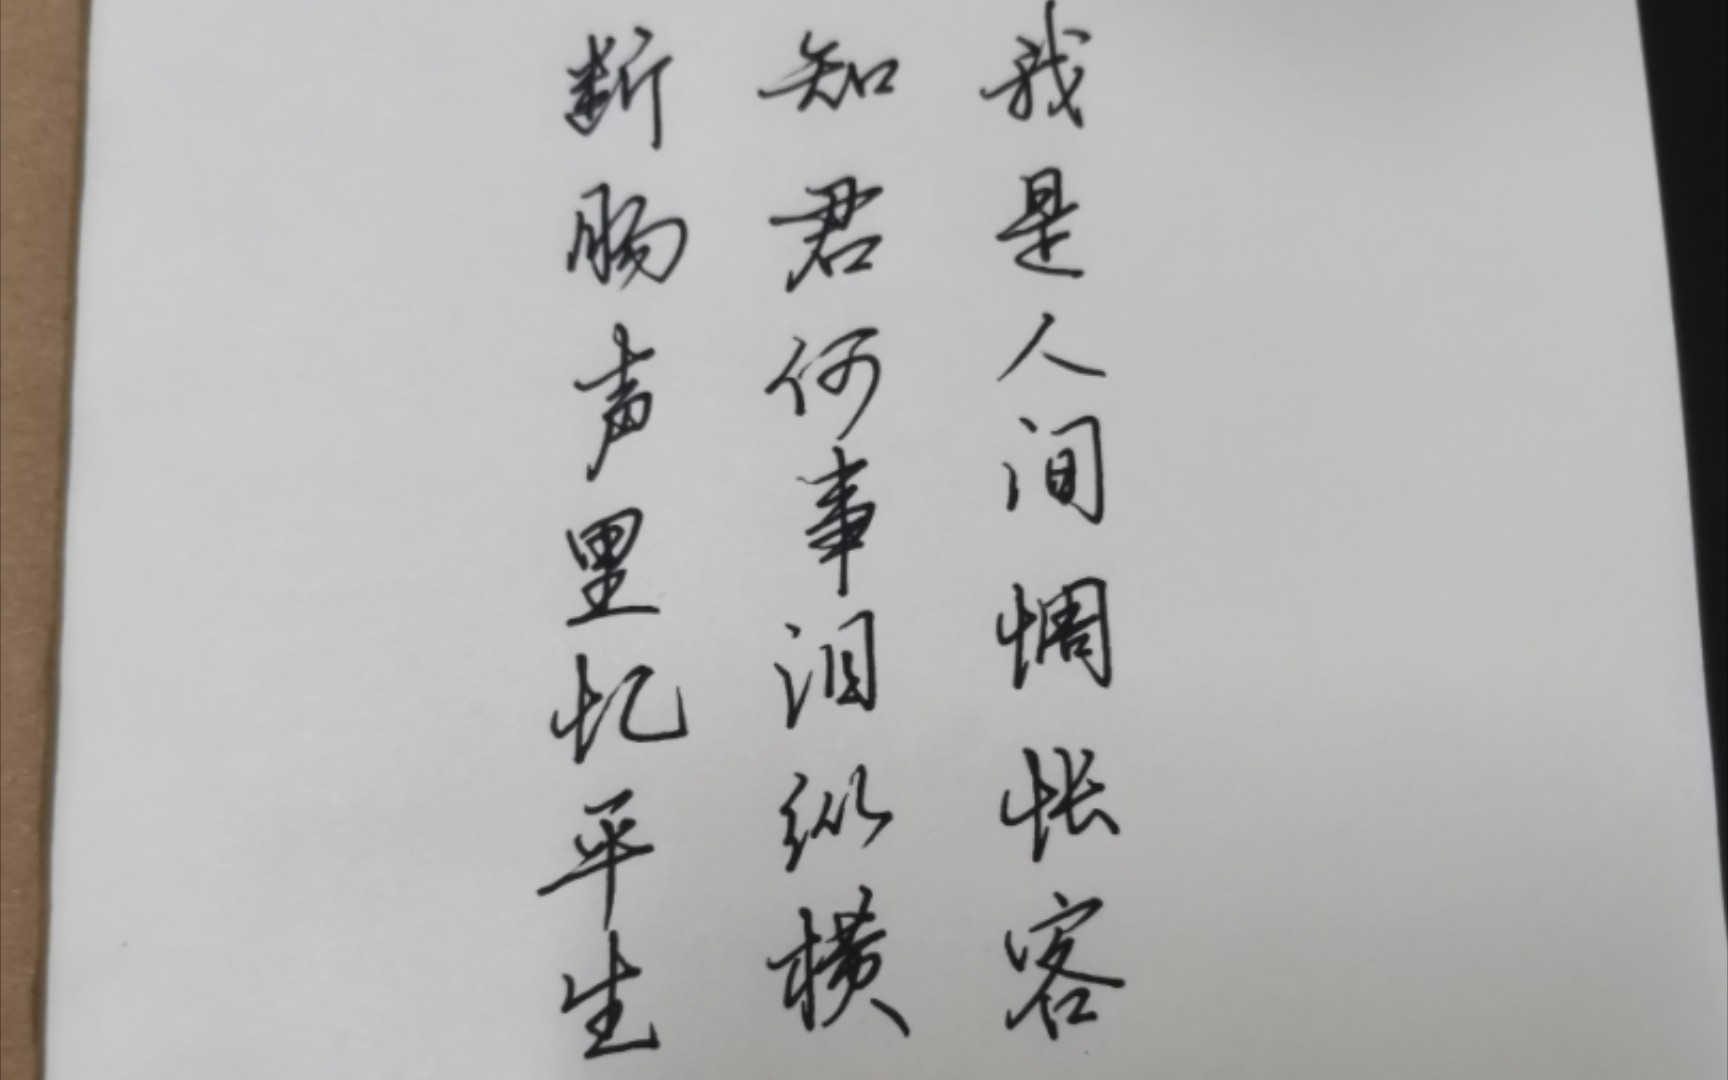 我是人间惆怅客
知君何事泪纵横
断肠声里忆平生